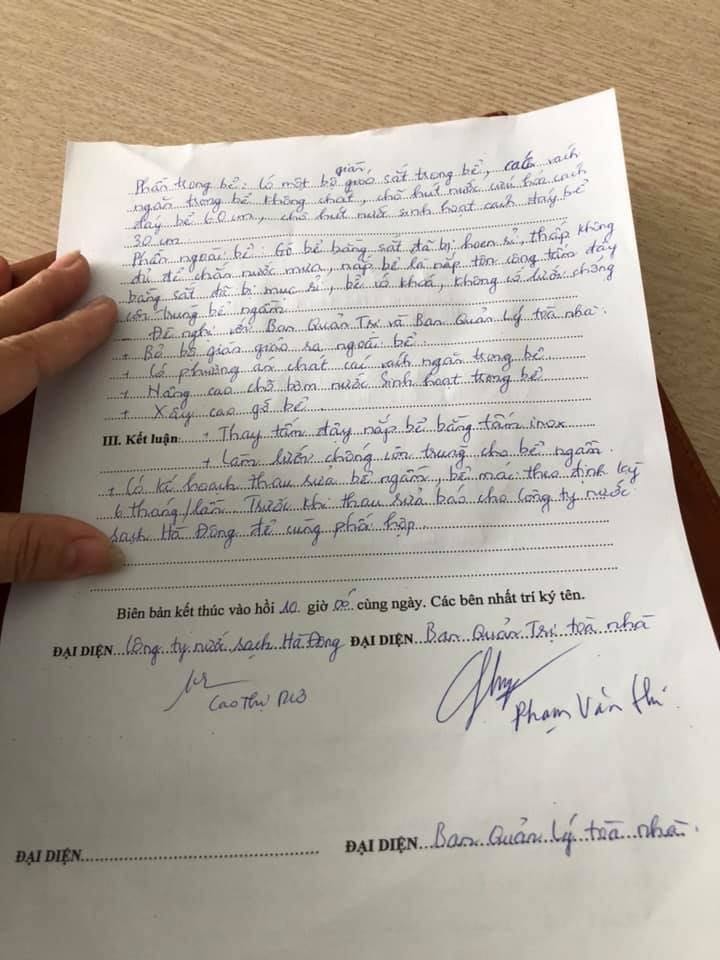 Phần trong bể: Có một bộ giàn giáo sắt trong bể, các vách
ngăn trong bể không chát, chỗ hút nước cứu hỏa cách
đáy bể 60 cm, chỗ hút nước sinh hoạt cách đáy bể
30 cm
Phần ngoài bể: Gờ bể bằng sắt đã bị hoen rỉ, thấp không
đủ để chắn nước mưa, nắp bể là nắp tôn cộng tấm đậy
bằng sắt đã bị mục rỉ, bể có khoá, không có lưới chống
côn trùng bể ngầm
- Đề nghị với Ban Quản Trị và Ban Quản Lý toà nhà.
+ Bỏ bộ giàn giáo ra ngoài bể.
+ Có phương án chát các vách ngăn trong bể
+ Nâng cao chỗ bơm nước sinh hoạt trong bể
+ Xây cao gờ bể
III. Kết luận: + Thay tấm đậy nắp bể bằng tấm inox
+ Làm lưới chống côn trùng cho bể ngầm.
+ Có kế hoạch thau rửa bể ngầm, bể mái theo định kỳ
6 tháng/lần. Trước khi thau rửa báo cho Công ty nước
sạch Hà Đông để cùng phối hợp
Biên bản kết thúc vào hồi 10 giờ 00 cùng ngày. Các bên nhất trí ký tên.
ĐẠI DIỆN Công ty nước sạch Hà Đông ĐẠI DIỆN Ban Quản Trị toà nhà
Cao Thị
Phạm Văn
ĐẠI DIỆN ĐẠI DIỆN Ban Quản Lý toà nhà.